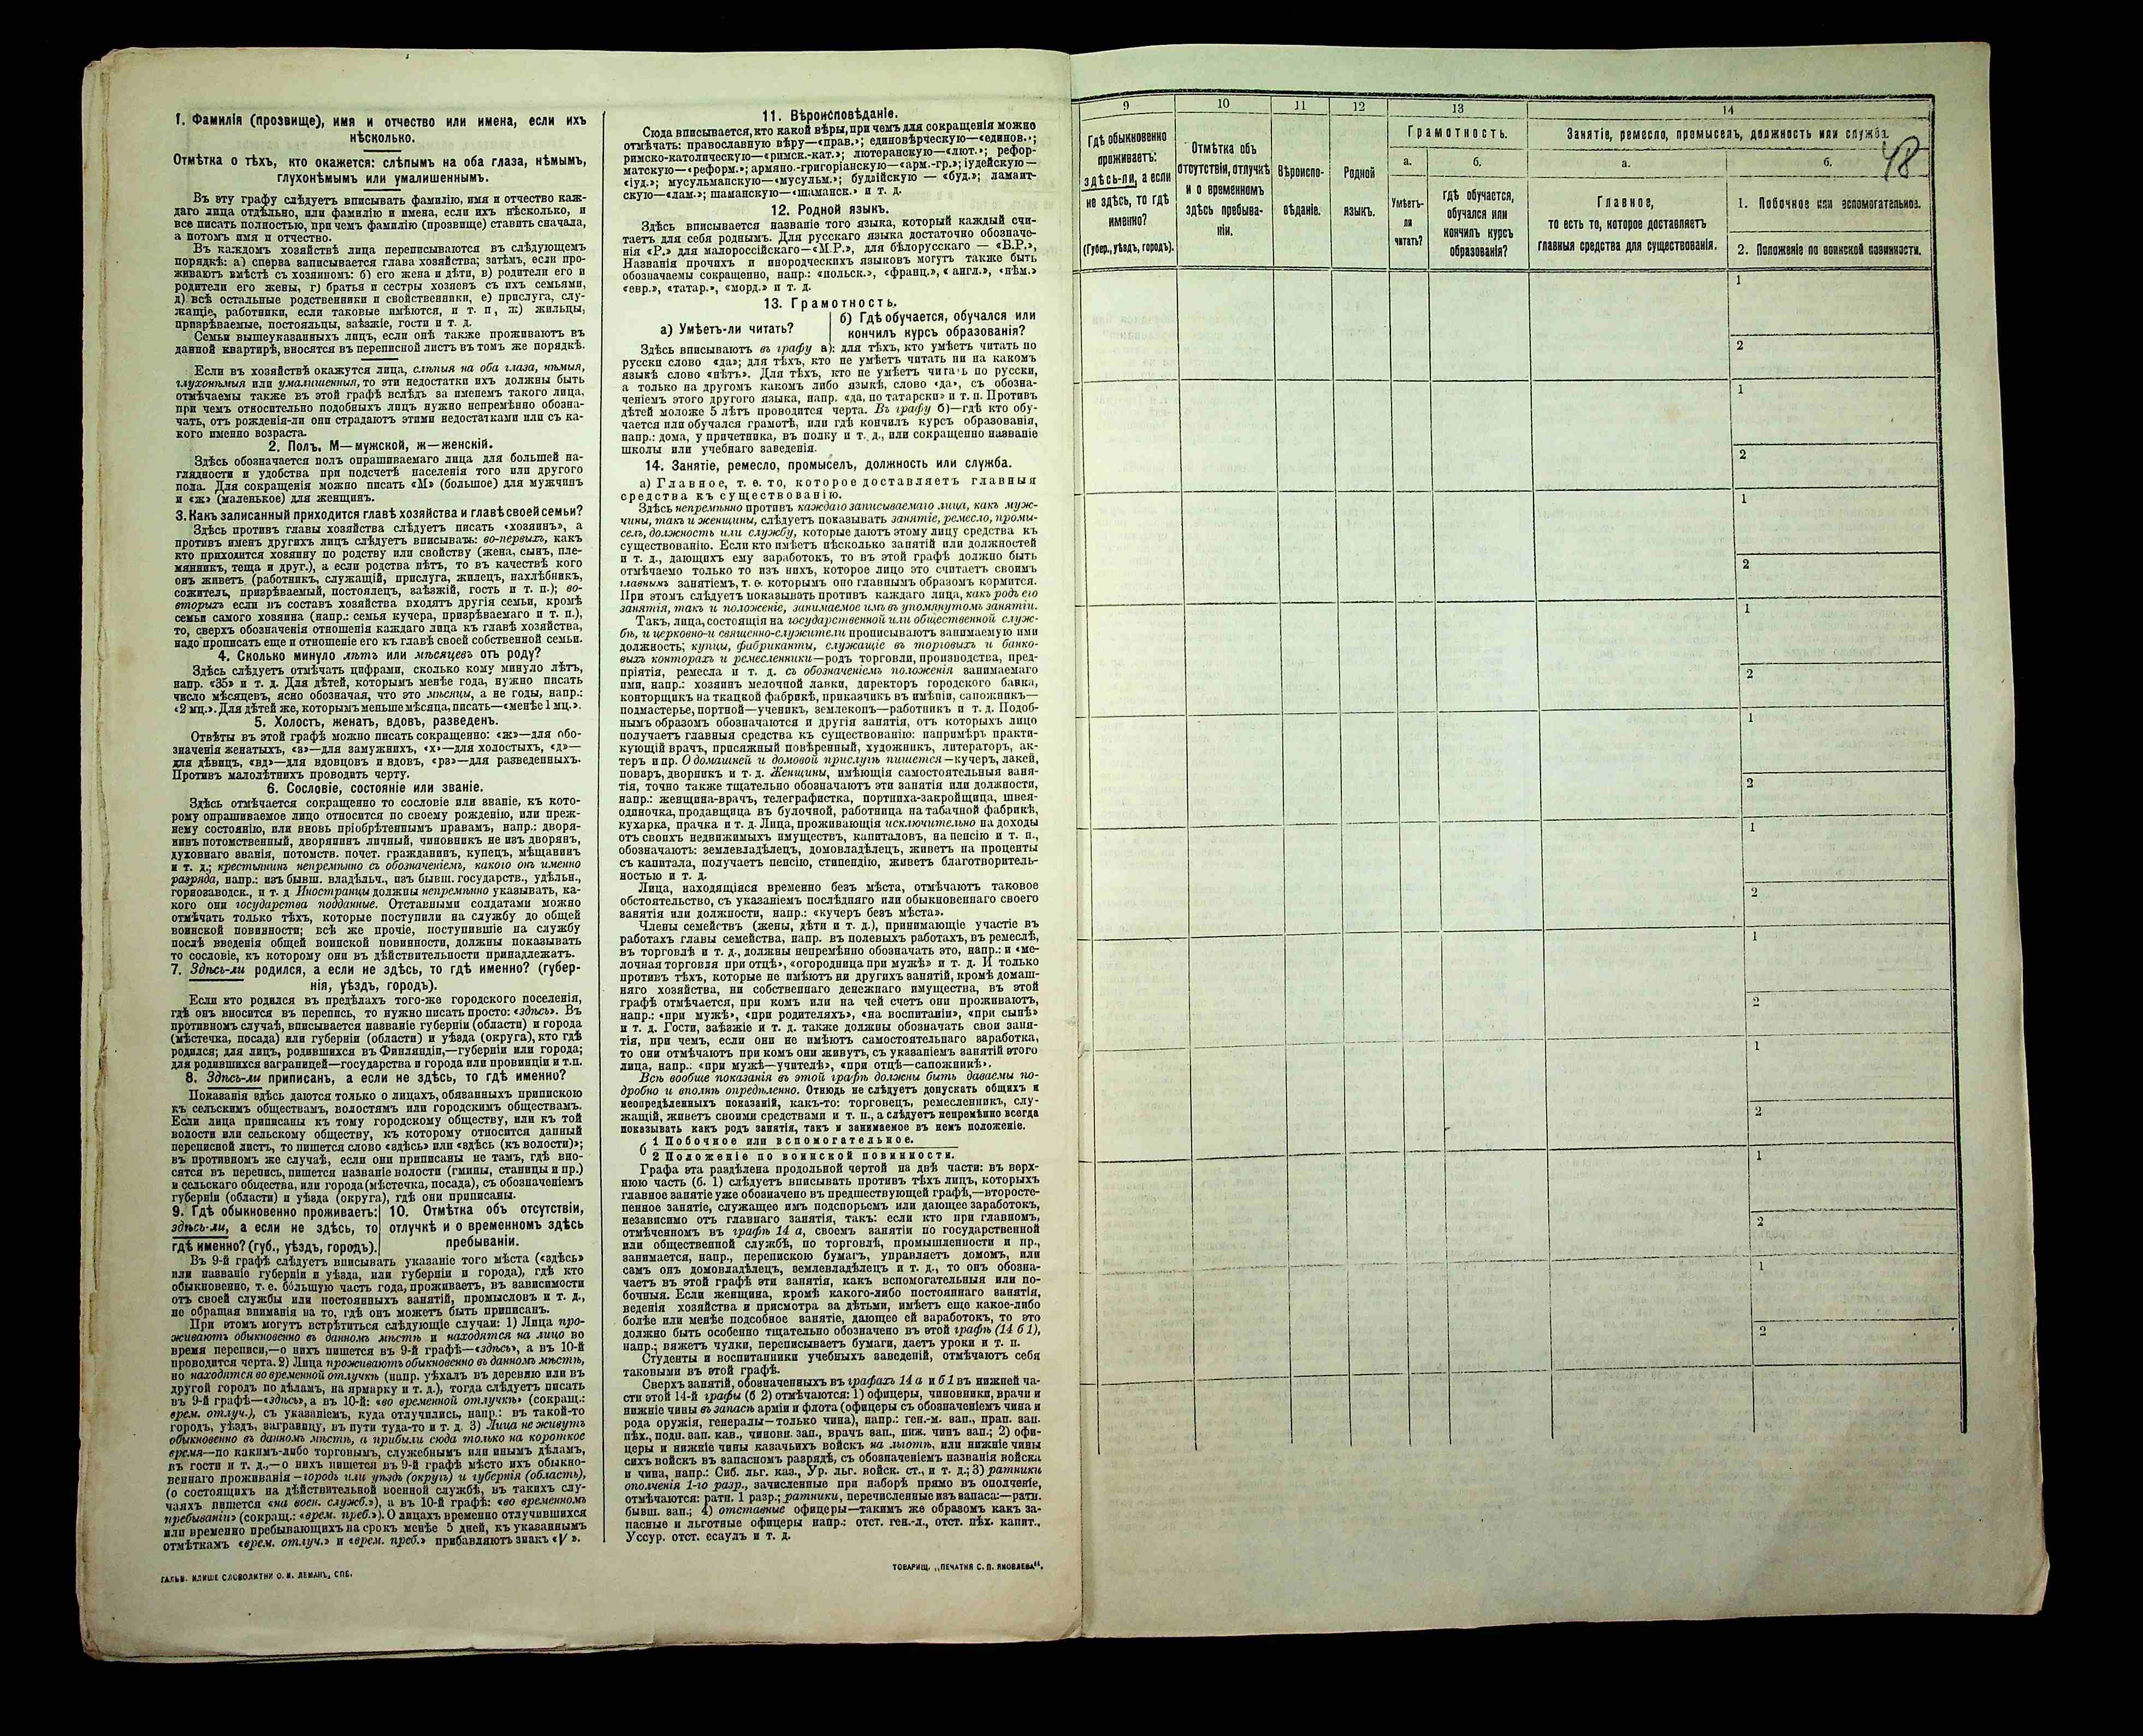 1. Фамилія (прозвище), имя и отчество или имена, если ихъ
нѣсколько.
Отмѣтка о тѣхъ, кто окажется: слѣпымъ на оба глаза, нѣмымъ,
глухонѣмымъ или умалишеннымъ.
Въ эту графу слѣдуетъ вписывать фамилію, имя и отчество каж-
даго лица отдѣльно, или фамилію и имена, если ихъ нѣсколько, и
все писать полностью, при чемъ фамилію (прозвище) ставить сначала,
а потомъ имя и отчество.
Въ каждомъ хозяйствѣ лица переписываются въ слѣдующемъ
порядкѣ: а) сперва записывается глава хозяйства; затѣмъ, если про-
живаютъ вмѣстѣ съ хозяиномъ: б) его жена и дѣти, в) родители его и
родители его жены, г) братья и сестры хозяевъ съ ихъ семьями,
д) всѣ остальные родственники и свойственники, е) прислуга, слу-
жащіе, работники, если таковые имѣются, и т. п, ж) жильцы,
призрѣваемые, постояльцы, заѣзжіе, гости и т. д.
Семьи вышеуказанныхъ лицъ, если онѣ также проживаютъ въ
данной квартирѣ, вносятся въ переписной листъ въ томъ же порядкѣ.
Если въ хозяйствѣ окажутся лица, слѣпыя на оба глаза, нѣмыя,
глухонѣмыя или умалишенныя, то эти недостатки ихъ должны быть
отмѣчаемы также въ этой графѣ вслѣдъ за именемъ такого лица,
при чемъ относительно подобныхъ лицъ нужно непремѣнно обозна-
чать, отъ рожденія-ли они страдаютъ этими недостатками или съ ка-
кого именно возраста.
2. Полъ, М—мужской, ж—женскій.
Здѣсь обозначается полъ опрашиваемаго лица для большей на-
глядности и удобства при подсчетѣ населенія того или другого
пола. Для сокращенія можно писать «М» (большое) для мужчинъ
и «ж» (маленькое) для женщинъ.
3. Какъ записанный приходится главѣ хозяйства и главѣ своей семьи?
Здѣсь противъ главы хозяйства слѣдуетъ писать «хозяинъ», а
противъ именъ другихъ лицъ слѣдуетъ вписывать: во-первыхъ, какъ
кто приходится хозяину по родству или свойству (жена, сынъ, пле-
мянникъ, теща и друг.), а если родства нѣтъ, то въ качествѣ кого
онъ живетъ (работникъ, служащій, прислуга, жилецъ, нахлѣбникъ,
сожитель, призрѣваемый, постоялецъ, заѣзжій, гость и т. п.); во-
вторыхъ если въ составъ хозяйства входятъ другія семьи, кромѣ
семьи самого хозяина (напр.: семья кучера, призрѣваемаго и т. п.),
то, сверхъ обозначенія отношенія каждаго лица къ главѣ хозяйства,
надо прописать еще и отношеніе его къ главѣ своей собственной семьи.
4. Сколько минуло лѣтъ или мѣсяцевъ отъ роду?
Здѣсь слѣдуетъ отмѣчать цифрами, сколько кому минуло лѣтъ,
напр. «35» и т. д. Для дѣтей, которымъ менѣе года, нужно писать
число мѣсяцевъ, ясно обозначая, что это мѣсяцы, а не годы, напр.:
«2 мц.». Для дѣтей же, которымъ меньше мѣсяца, писать—«менѣе 1 мц.».
5. Холостъ, женатъ, вдовъ, разведенъ.
Отвѣты въ этой графѣ можно писать сокращенно: «ж»—для обо-
значенія женатыхъ, «з»—для замужнихъ, «х»—для холостыхъ, «д»—
для дѣвицъ, «вд»—для вдовцовъ и вдовъ, «рз»—для разведенныхъ.
Противъ малолѣтнихъ проводить черту.
6. Сословіе, состояніе или званіе.
Здѣсь отмѣчается сокращенно то сословіе или званіе, къ кото-
рому опрашиваемое лицо относится по своему рожденію, или преж-
нему состоянію, или вновь пріобрѣтеннымъ правамъ, напр.: дворя-
нинъ потомственный, дворянинъ личный, чиновникъ не изъ дворянъ,
духовнаго званія, потомств. почет. гражданинъ, купецъ, мѣщанинъ
и т. д.; крестьянинъ непремѣнно съ обозначеніемъ, какого онъ именно
разряда, напр.: изъ бывш. владѣльч., изъ бывш. государств., удѣльн.,
горнозаводск., и т. д Иностранцы должны непремѣнно указывать, ка-
кого они государства подданные. Отставными солдатами можно
отмѣчать только тѣхъ, которые поступили на службу до общей
воинской повинности; всѣ же прочіе, поступившіе на службу
послѣ введенія общей воинской повинности, должны показывать
то сословіе, къ которому они въ дѣйствительности принадлежатъ.
7. Здѣсь-ли родился, а если не здѣсь, то гдѣ именно? (губер-
нія, уѣздъ, городъ).
Если кто родился въ предѣлахъ того-же городского поселенія,
гдѣ онъ вносится въ перепись, то нужно писать просто: «здѣсь». Въ
противномъ случаѣ, вписывается названіе губерніи (области) и города
(мѣстечка, посада) или губерніи (области) и уѣзда (округа), кто гдѣ
родился; для лицъ, родившихся въ Финляндіи,—губерніи или города;
для родившихся заграницей—государства и города или провинціи и т.п.
8. Здѣсь-ли приписанъ, а если не здѣсь, то гдѣ именно?
Показанія здѣсь даются только о лицахъ, обязанныхъ припискою
къ сельскимъ обществамъ, волостямъ или городскимъ обществамъ.
Если лица приписаны къ тому городскому обществу, или къ той
волости или сельскому обществу, къ которому относится данный
переписной листъ, то пишется слово «здѣсь» или «здѣсь (къ волости)»;
въ противномъ же случаѣ, если они приписаны не тамъ, гдѣ вно-
сятся въ перепись, пишется названіе волости (гмины, станицы и пр.)
и сельскаго общества, или города (мѣстечка, посада), съ обозначеніемъ
губерніи (области) и уѣзда (округа), гдѣ они приписаны.
9. Гдѣ обыкновенно проживаетъ:
здѣсь-ли, а если не здѣсь, то
гдѣ именно? (губ., уѣздъ, городъ).
10. Отмѣтка объ отсутствіи,
отлучкѣ и о временномъ здѣсь
пребываніи.
Въ 9-й графѣ слѣдуетъ вписывать указаніе того мѣста («здѣсь»
или названіе губерніи и уѣзда, или губерніи и города), гдѣ кто
обыкновенно, т. е. бо́льшую часть года, проживаетъ, въ зависимости
отъ своей службы или постоянныхъ занятій, промысловъ и т. д.,
не обращая вниманія на то, гдѣ онъ можетъ быть приписанъ.
При этомъ могутъ встрѣтиться слѣдующіе случаи: 1) Лица про-
живаютъ обыкновенно въ данномъ мѣстѣ и находятся на лицо во
время переписи,—о нихъ пишется въ 9-й графѣ—«здѣсь», а въ 10-й
проводится черта. 2) Лица проживаютъ обыкновенно въ данномъ мѣстѣ,
но находятся во временной отлучкѣ (напр. уѣхалъ въ деревню или въ
другой городъ по дѣламъ, на ярмарку и т. д.), тогда слѣдуетъ писать
въ 9-й графѣ—«здѣсь», а въ 10-й: «во временной отлучкѣ» (сокращ.:
врем. отлуч.), съ указаніемъ, куда отлучились, напр.: въ такой-то
городъ, уѣздъ, заграницу, въ пути туда-то и т. д. 3) Лица не живутъ
обыкновенно въ данномъ мѣстѣ, а прибыли сюда только на короткое
время—по какимъ-либо торговымъ, служебнымъ или инымъ дѣламъ,
въ гости и т. д.,—о нихъ пишется въ 9-й графѣ мѣсто ихъ обыкно-
веннаго проживанія—городъ или уѣздъ (округъ) и губернія (область),
(о состоящихъ на дѣйствительной военной службѣ, въ такихъ слу-
чаяхъ пишется «на воен. служб.»), а въ 10-й графѣ: «во временномъ
пребываніи» (сокращ.: «врем. преб.»). О лицахъ временно отлучившихся
или временно пребывающихъ на срокъ менѣе 5 дней, къ указаннымъ
отмѣткамъ «врем. отлуч.» и «врем. преб.» прибавляютъ знакъ «V».
ГАЛЬВ. КЛИШЕ СЛОВОЛИТНИ О. И. ЛЕМАНЪ, СПБ.
11. Вѣроисповѣданіе.
Сюда вписывается, кто какой вѣры, при чемъ для сокращенія можно
отмѣчать: православную вѣру—«прав.»; единовѣрческую—«единов.»;
римско-католическую—«римск.-кат.»; лютеранскую—«лют.»; рефор-
матскую—«реформ.»; армяно.-григоріанскую—«арм.-гр.»; іудейскую—
«іуд.»; мусульманскую—«мусульм.»; буддійскую — «буд.»; ламаит-
скую—«лам.»; шаманскую—«шаманск.» и т. д.
12. Родной языкъ.
Здѣсь вписывается названіе того языка, который каждый счи-
таетъ для себя роднымъ. Для русскаго языка достаточно обозначе-
нія «Р.» для малороссійскаго—«М.Р.», для бѣлорусскаго — «Б.Р.»,
Названія прочихъ и инородческихъ языковъ могутъ также быть
обозначаемы сокращенно, напр.: «польск.», «франц.», « англ.», «нѣм.»
«евр.», «татар.», «морд.» и т. д.
13. Грамотность.
а) Умѣетъ-ли читать?
б) Гдѣ обучается, обучался или
кончилъ курсъ образованія?
Здѣсь вписываютъ въ графу а): для тѣхъ, кто умѣетъ читать по
русски слово «да»; для тѣхъ, кто не умѣетъ читать ни на какомъ
языкѣ слово «нѣтъ». Для тѣхъ, кто не умѣетъ читать по русски,
а только на другомъ какомъ либо языкѣ, слово «да», съ обозна-
ченіемъ этого другого языка, напр. «да, по татарски» и т. п. Противъ
дѣтей моложе 5 лѣтъ проводится черта. Въ графу б)—гдѣ кто обу-
чается или обучался грамотѣ, или гдѣ кончилъ курсъ образованія,
напр.: дома, у причетника, въ полку и т. д., или сокращенно названіе
школы или учебнаго заведенія.
14. Занятіе, ремесло, промыселъ, должность или служба.
а) Главное, т. е. то, которое доставляетъ главныя
средства къ существованію.
Здѣсь непремѣнно противъ каждаго записываемаго лица, какъ муж-
чины, такъ и женщины, слѣдуетъ показывать занятіе, ремесло, промы-
селъ, должность или службу, которые даютъ этому лицу средства къ
существованію. Если кто имѣетъ нѣсколько занятій или должностей
и т. д., дающихъ ему заработокъ, то въ этой графѣ должно быть
отмѣчаемо только то изъ нихъ, которое лицо это считаетъ своимъ
главнымъ занятіемъ, т. е. которымъ оно главнымъ образомъ кормится.
При этомъ слѣдуетъ показывать противъ каждаго лица, какъ родъ его
занятія, такъ и положеніе, занимаемое имъ въ упомянутомъ занятіи.
Такъ, лица, состоящія на государственной или общественной служ-
бѣ, и церковно-и священно-служители прописываютъ занимаемую ими
должность; купцы, фабриканты, служащіе въ торговыхъ и банко-
выхъ конторахъ и ремесленники—родъ торговли, производства, пред-
пріятія, ремесла и т. д. съ обозначеніемъ положенія занимаемаго
ими, напр.: хозяинъ мелочной лавки, директоръ городского банка,
конторщикъ на ткацкой фабрикѣ, приказчикъ въ имѣніи, сапожникъ—
подмастерье, портной—ученикъ, землекопъ—работникъ и т. д. Подоб-
нымъ образомъ обозначаются и другія занятія, отъ которыхъ лицо
получаетъ главныя средства къ существованію: напримѣръ практи-
кующій врачъ, присяжный повѣренный, художникъ, литераторъ, ак-
теръ и пр. О домашней и домовой прислугѣ пишется—кучеръ, лакей,
поваръ, дворникъ и т. д. Женщины, имѣющія самостоятельныя заня-
тія, точно также тщательно обозначаютъ эти занятія или должности,
напр.: женщина-врачъ, телеграфистка, портниха-закройщица, швея-
одиночка, продавщица въ булочной, работница на табачной фабрикѣ,
кухарка, прачка и т. д. Лица, проживающія исключительно на доходы
отъ своихъ недвижимыхъ имуществъ, капиталовъ, на пенсію и т. п.,
обозначаютъ: землевладѣлецъ, домовладѣлецъ, живетъ на проценты
съ капитала, получаетъ пенсію, стипендію, живетъ благотворитель-
ностью и т. д.
Лица, находящіяся временно безъ мѣста, отмѣчаютъ таковое
обстоятельство, съ указаніемъ послѣдняго или обыкновеннаго своего
занятія или должности, напр.: «кучеръ безъ мѣста».
Члены семействъ (жены, дѣти и т. д.), принимающіе участіе въ
работахъ главы семейства, напр. въ полевыхъ работахъ, въ ремеслѣ,
въ торговлѣ и т. д., должны непремѣнно обозначать это, напр.: и «ме-
лочная торговля при отцѣ», «огородница при мужѣ» и т. д. И только
противъ тѣхъ, которые не имѣютъ ни другихъ занятій, кромѣ домаш-
няго хозяйства, ни собственнаго денежнаго имущества, въ этой
графѣ отмѣчается, при комъ или на чей счетъ они проживаютъ,
напр.: «при мужѣ», «при родителяхъ», «на воспитаніи», «при сынѣ»
и т. д. Гости, заѣзжіе и т. д. также должны обозначать свои заня-
тія, при чемъ, если они не имѣютъ самостоятельнаго заработка,
то они отмѣчаютъ при комъ они живутъ, съ указаніемъ занятій этого
лица, напр.: «при мужѣ—учителѣ», «при отцѣ—сапожникѣ».
Всѣ вообще показанія въ этой графѣ должны быть даваемы по-
дробно и вполнѣ опредѣленно. Отнюдь не слѣдуетъ допускать общихъ и
неопредѣленныхъ показаній, какъ-то: торговецъ, ремесленникъ, слу-
жащій, живетъ своими средствами и т. п., а слѣдуетъ непремѣнно всегда
показывать какъ родъ занятія, такъ и занимаемое въ немъ положеніе.
1 Побочное или вспомогательное.
б
2 Положеніе по воинской повинности.
Графа эта раздѣлена продольной чертой на двѣ части: въ верх-
нюю часть (б. 1) слѣдуетъ вписывать противъ тѣхъ лицъ, которыхъ
главное занятіе уже обозначено въ предшествующей графѣ,—второсте-
пенное занятіе, служащее имъ подспорьемъ или дающее заработокъ,
независимо отъ главнаго занятія, такъ: если кто при главномъ,
отмѣченномъ въ графѣ 14 а, своемъ занятіи по государственной
или общественной службѣ, по торговлѣ, промышленности и пр.,
занимается, напр., перепискою бумагъ, управляетъ домомъ, или
самъ онъ домовладѣлецъ, землевладѣлецъ и т. д., то онъ обозна-
чаетъ въ этой графѣ эти занятія, какъ вспомогательныя или по-
бочныя. Если женщина, кромѣ какого-либо постояннаго занятія,
веденія хозяйства и присмотра за дѣтьми, имѣетъ еще какое-либо
болѣе или менѣе подсобное занятіе, дающее ей заработокъ, то это
должно быть особенно тщательно обозначено въ этой графѣ (14 б 1),
напр.: вяжетъ чулки, переписываетъ бумаги, даетъ уроки и т. п.
Студенты и воспитанники учебныхъ заведеній, отмѣчаютъ себя
таковыми въ этой графѣ.
Сверхъ занятій, обозначенныхъ въ графахъ 14 а и б 1 въ нижней ча-
сти этой 14-й графы (б 2) отмѣчаются: 1) офицеры, чиновники, врачи и
нижніе чины въ запасѣ арміи и флота (офицеры съ обозначеніемъ чина и
рода оружія, генералы—только чина), напр.: ген.-м. зап., прап. зап.
пѣх., подп. зап. кав., чиновн. зап., врачъ зап., ниж. чинъ зап.; 2) офи-
церы и нижніе чины казачьихъ войскъ на льготѣ, или нижніе чины
сихъ войскъ въ запасномъ разрядѣ, съ обозначеніемъ названія войска
и чина, напр.: Сиб. льг. каз., Ур. льг. войск. ст., и т. д.; 3) ратники
ополченія 1-го разр., зачисленные при наборѣ прямо въ ополченіе,
отмѣчаются: ратн. 1 разр.; ратники, перечисленные изъ запаса:—ратн.
бывш. зап.; 4) отставные офицеры—такимъ же образомъ какъ за-
пасные и льготные офицеры напр.: отст. ген.-л., отст. пѣх. капит.,
Уссур. отст. есаулъ и т. д.
ТОВАРИЩ. „ПЕЧАТНЯ С. П. ЯКОВЛЕВА“.
9
Гдѣ обыкновенно
проживаетъ:
здѣсь-ли, а если
не здѣсь, то гдѣ
именно?
(Губер., уѣздъ, городъ).
10
Отмѣтка объ
отсутствіи, отлучкѣ
и о временномъ
здѣсь пребыва-
ніи.
11
Вѣроиспо-
вѣданіе.
12
Родной
языкъ.
13
Грамотность.
а.
Умѣетъ-
ли
читать?
б.
Гдѣ обучается,
обучался или
кончилъ курсъ
образованія?
14
Занятіе, ремесло, промыселъ, должность или служба.
48
а.
Главное,
то есть то, которое доставляетъ
главныя средства для существованія.
б.
1. Побочное или вспомогательное.
2. Положеніе по воинской повинности.
1
2
1
2
1
2
1
2
1
2
1
2
1
2
1
2
1
2
1
2